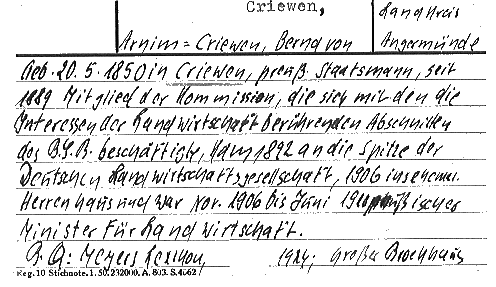 Criewen,
Landkreis
Arnim = Criewen, Bernd von
Angermünde
Geb. 20. 5. 1850 in Criewen, preuß. Staatsmann, seit
1889 Mitglied der Kommission, die sich mit den die
Interessen der Landwirtschaft berührenden Abschnitten
des B.G.B. beschäftigte, kam 1892 an die Spitze der
Deutschen Landwirtschaftsgesellschaft, 1906 ins ehemal.
Herrenhaus und war Nov. 1906 bis Juni preußischer
Minister für Landwirtschaft.
Meyers Lexikon, 1924; Großer Brockhaus
Reg. 10 Stichnote. 1. 50. 232000. A. 803. S. 4662